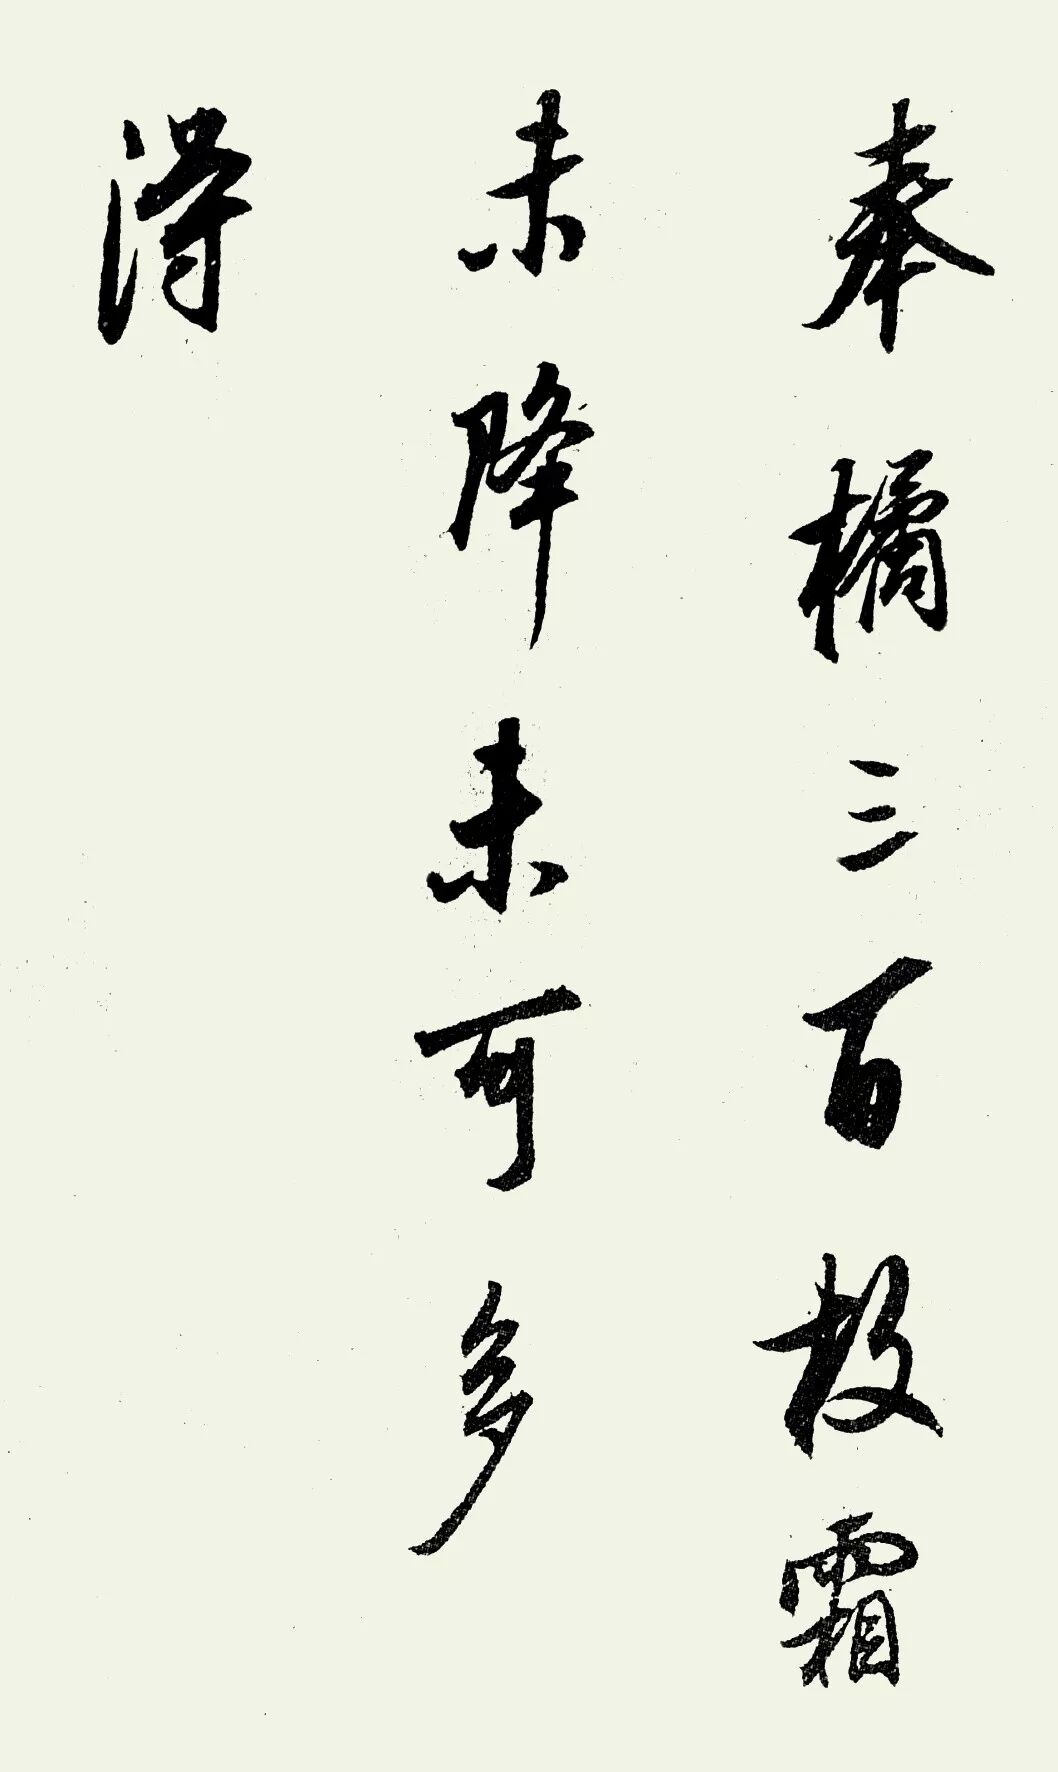 奉橘三百枚霜
未降未可多
得